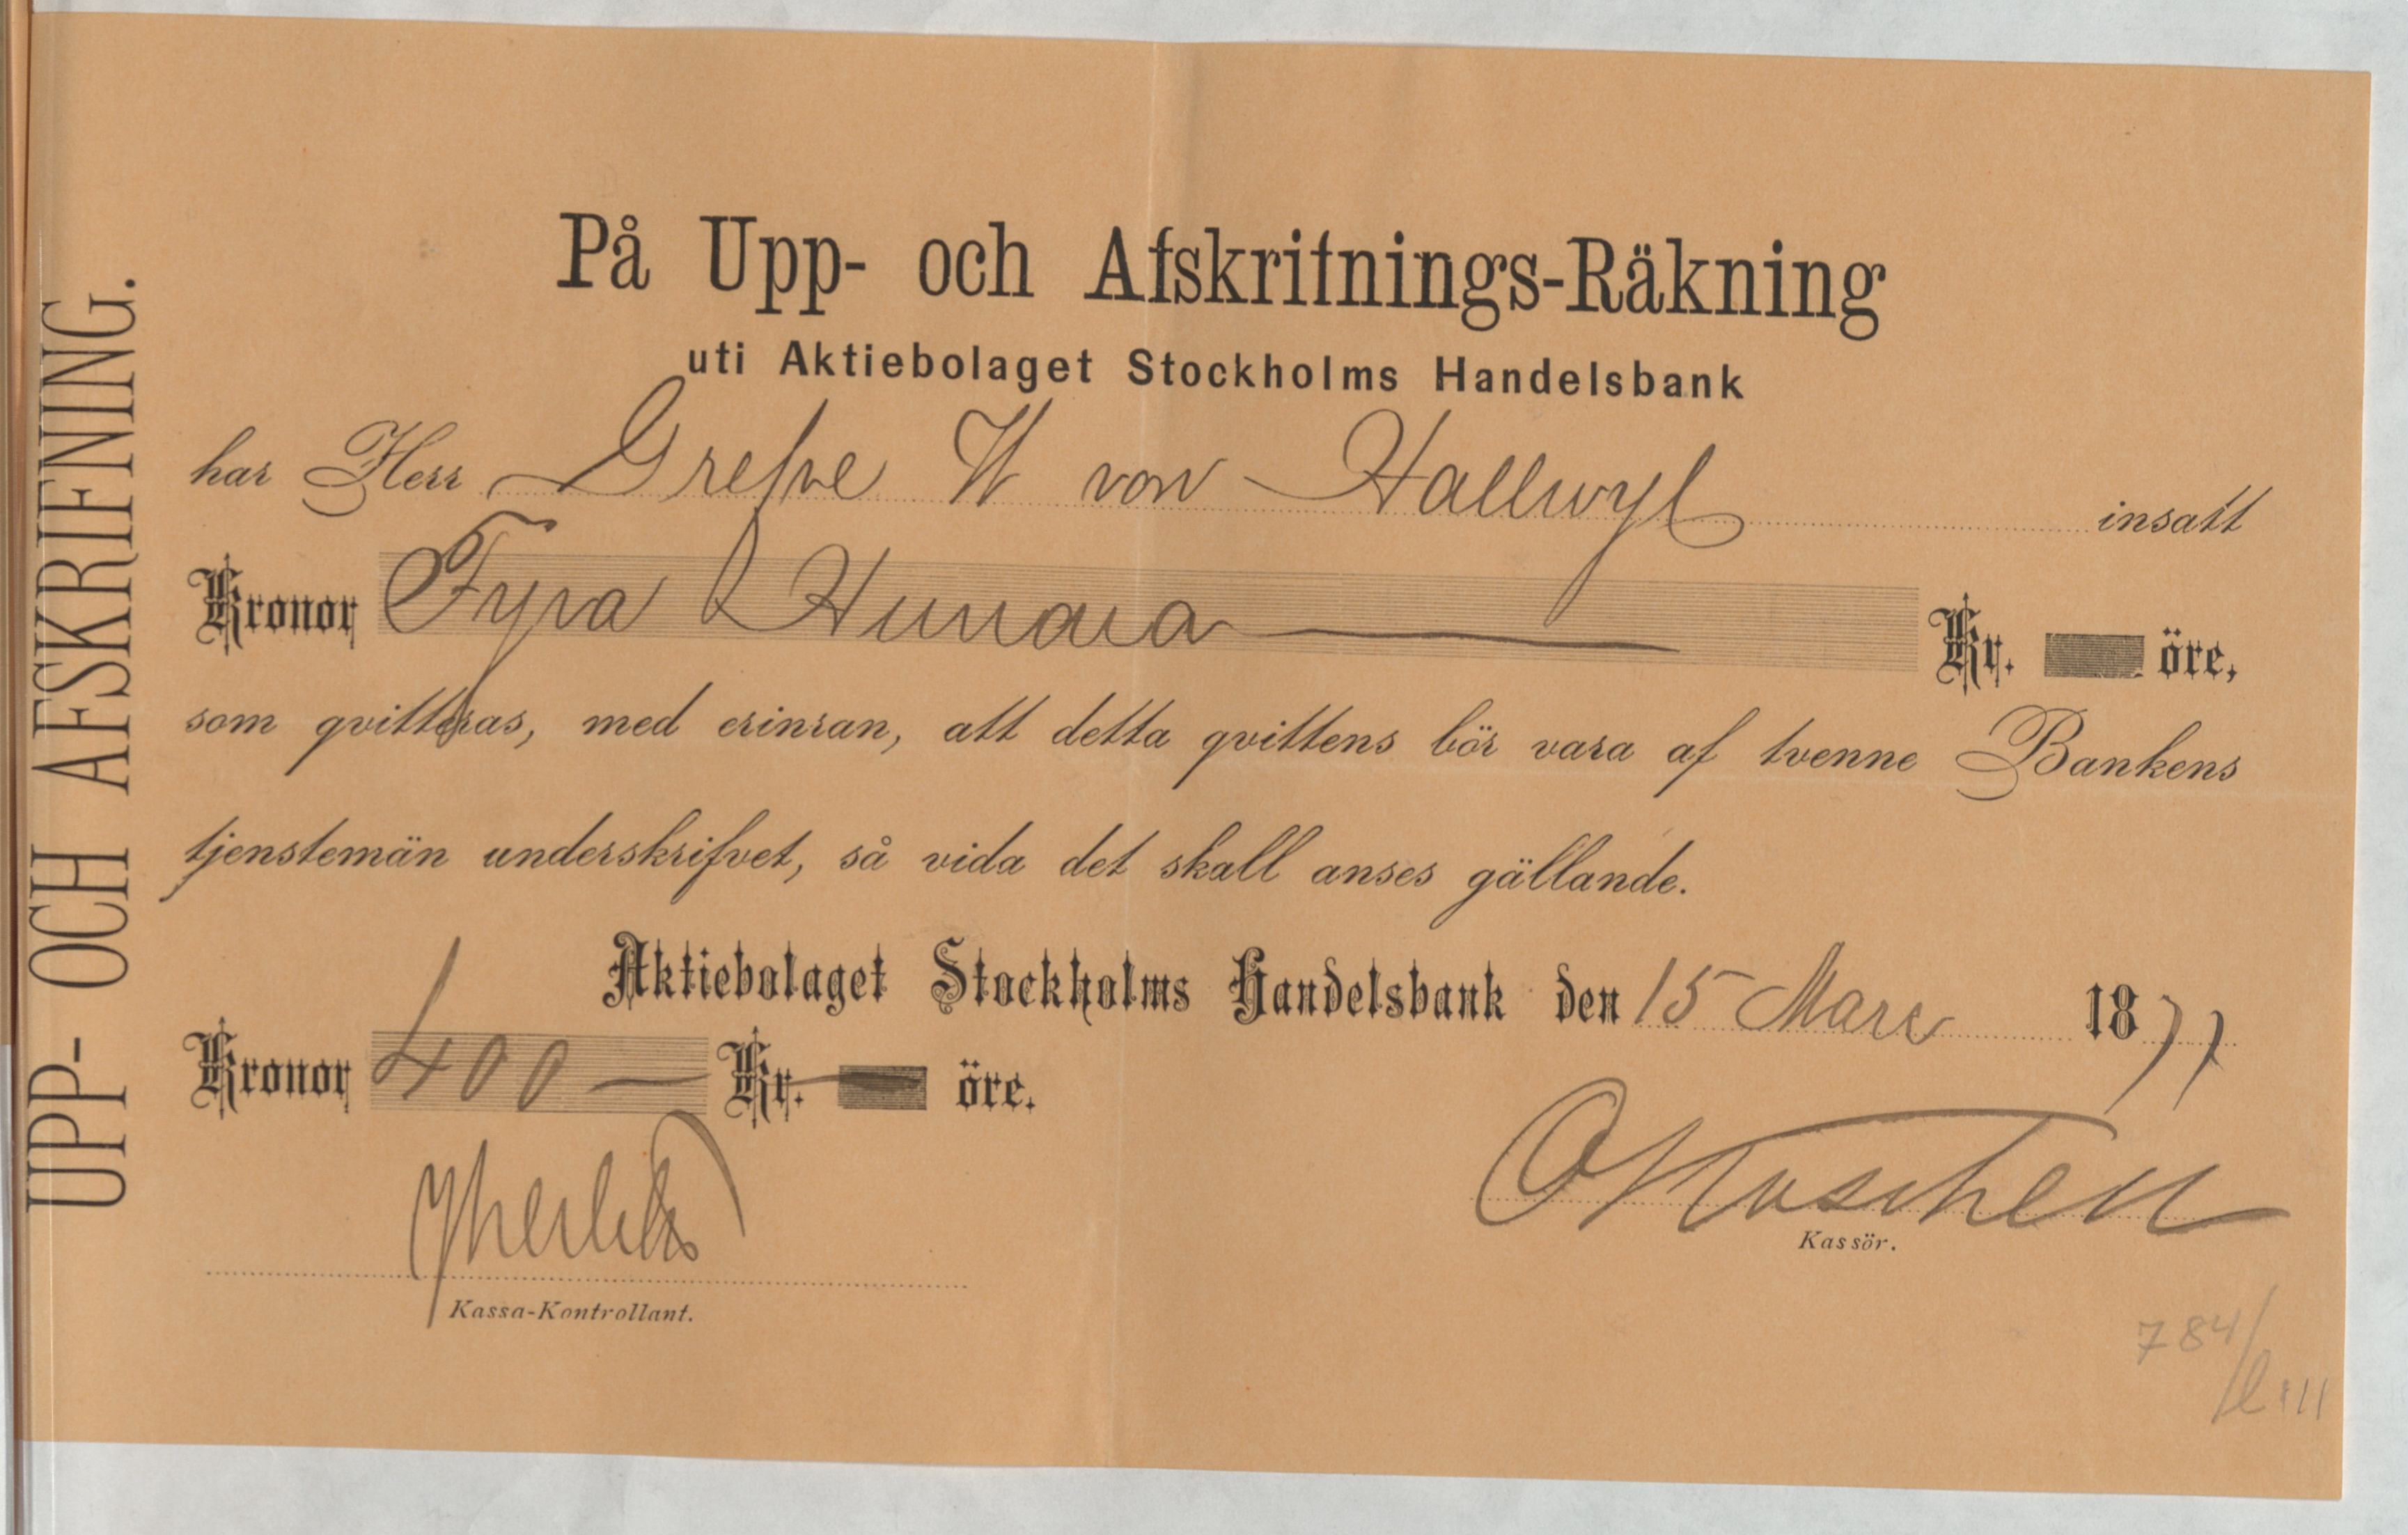 UPP- OCH AFSKRIFNING.
På Upp- och Afskrifnings-Räkning
uti Aktiebolaget Stockholms Handelsbank
har Herr Grefve W von Hallwyl insatt
Kronor Fyra Hundra Kr. öre,
som qvitteras, med erinran, att detta qvittens bör vara af tvenne Bankens
tjenstemän underskrifvet, så vida det skall anses gällande.
Aktiebolaget Stockholms Handelsbank den 15 Mars 1877
Kronor 400 — Kr. — öre.
Kassör.
Kassa-Kontrollant.
784/